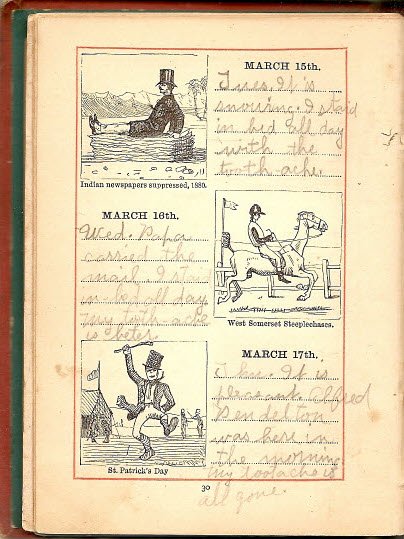 MARCH 15th.
Tues. It is
snowing. I staid
in bed all day
with the
tooth ache.
Indian newspapers suppressed, 1880.
MARCH 16th.
Wed. Papa
carried the
mail. I staid
in bed all day
my tooth ache
is beter.
West Somerset Steeplechases.
MARCH 17th.
Thu. It is
pleasant. Alfred
Pendelton
was here in
the morning
My tootache is
all gone.
St. Patrick's Day
30